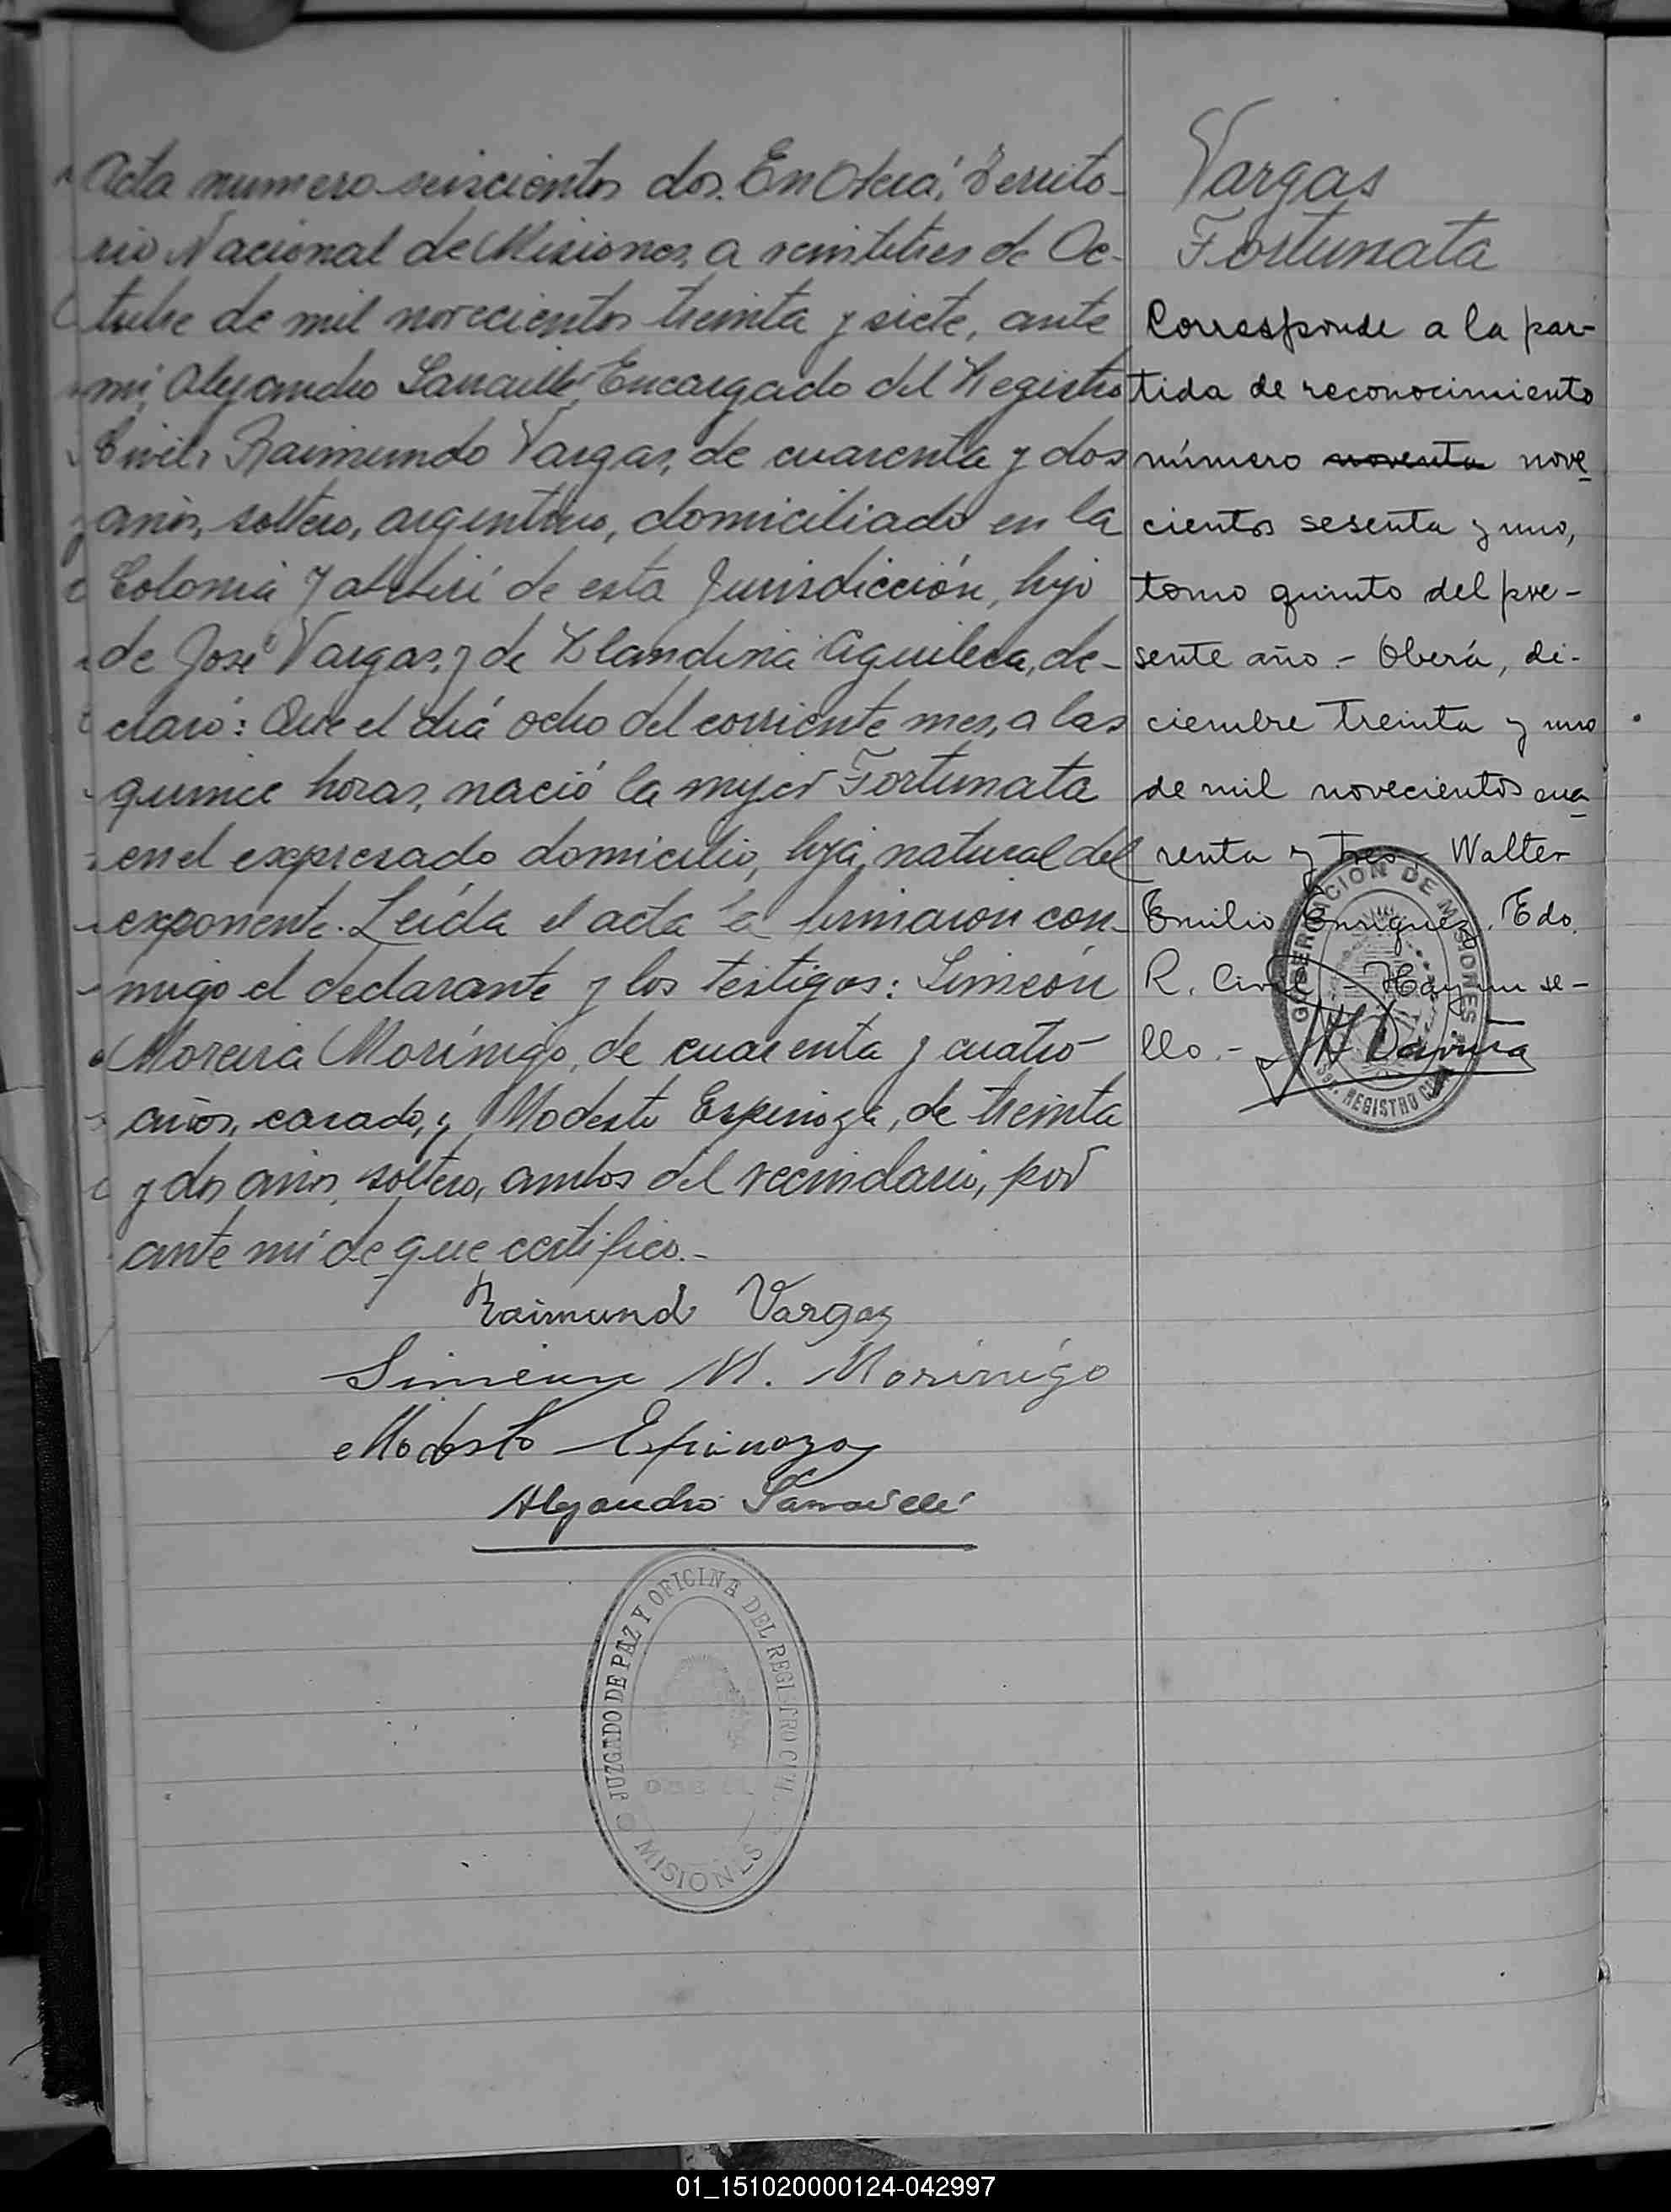 Acta numero seiscientos dos. En Oberá, Territo-
rio Nacional de Misiones, a veintitres de Oc-
tubre de mil novecientos treinta y siete, ante
mi, Alejandro Encargado del Registro
Civil, Raimundo Vargas, de cuarenta y dos
años, soltero, argentino, domiciliado en la
Colonia de esta Jurisdicción, hijo
de José Vargas, y de Blandina Aguilera, de-
claró: Que el día ocho del corriente mes, a las
quince horas, nació la mujer Fortunata
en el expresado domicilio, hija natural del
exponente. Leída el acta la firmaron con-
migo el declarante y los testigos: Simeón
Moreira Morínigo, de cuarenta y cuatro
años, casado, y Modesto Espinoza, de treinta
y dos años, soltero, ambos del vecindario, por
ante mí de que certifico.-
Raimund Vargas
M. Morinigo
Modesto Espinoza
Alejandro
JUZGADO DE PAZ Y OFICINA DEL REGISTRO CIVIL
MISIONES
Vargas
Fortunata
Corresponde a la par-
tida de reconocimiento
número noventa nove
cientos sesenta y uno,
tomo quinto del pre-
sente año.- Oberá, di-
ciembre treinta y uno
de mil novecientos cua
renta y tres - Walter
Emilio Enriquez. Edo.
R. Civil - Hay un se-
llo.-
GOBERNACION DE MISIONES
REGISTRO CIVIL
01_151020000124-042997